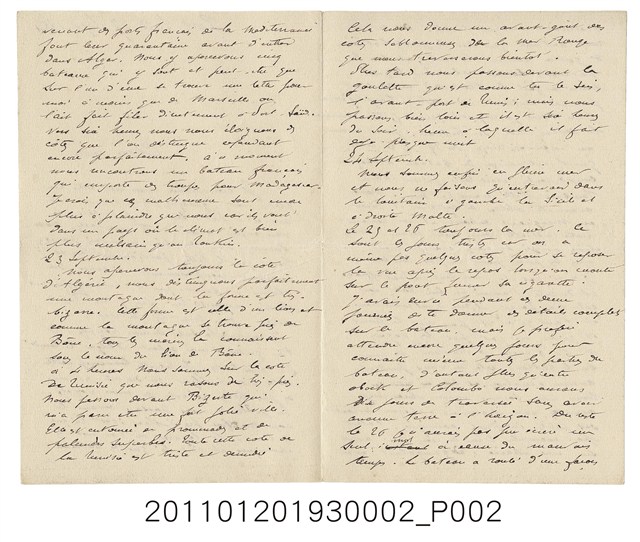 venant des ports français de la Méditerranée
font leur quarantaine avant d'entrer
dans Alger. Nous y apercevons cinq
bateaux qui y sont et peut-être que
sur l'un d'eux se trouve une lettre pour
moi à moins que de Marseille on
l'ait fait filer directement à Port-Saïd.
Vers six heures nous nous éloignons des
côtes que l'on distingue cependant
encore parfaitement, à ce moment
nous rencontrons un bateau français
qui emporte des troupes pour Madagascar.
que ces malheureux sont encore
plus à plaindre que nous car ils vont
dans un pays où le climat est bien
plus malsain qu'au Tonkin.
23 Septembre.
Nous apercevons toujours la côte
d'Algérie, nous distinguons parfaitement
une montagne dont la forme est très
bizarre. Cette forme est celle d'un lion et
comme la montagne se trouve près de
Bône, tous les marins la connaissent
sous le nom du lion de Bône.
à 4 heures nous sommes sur la côte
de Tunisie que nous rasons de très-près.
Nous passons devant Bizerte qui
m'a paru être une fort jolie ville.
Elle est entourée de promenades et de
palmiers superbes. Toute cette côte de
la Tunisie est triste et dénudée
Cela nous donne un avant-goût des
côtes sablonneuses de la mer Rouge
que nous traverserons bientôt.
Plus tard nous passons devant la
goulette qui est comme tu le sais,
l'avant-port de Tunis; mais nous
passons bien loin et il est six heures
du soir, heure à laquelle il fait
déjà presque nuit
24 Septemb.
Nous sommes enfin en pleine mer
et nous ne faisons qu'entrevoir dans
le lointain à gauche la Sicile et
à droite Malte.
Le 25 et 26 toujours la mer. Ce
sont les jours tristes car on a
même pas quelques côtes pour se reposer
la vue après le repos lorsqu'on monte
sur le pont fumer sa cigarette!
J'avais envie pendant ces deux
journées de te donner des détails complets
sur le bateau, mais je préfère
attendre encore quelques jours pour
connaître même toutes les parties du
bateau, d'autant plus qu'entre
obock et Colombo nous aurons
dix jours de traversée sans avoir
aucune terre à l'horizon. Du reste
le 26 je n'aurais pas pu écrire un
seul mot à cause du mauvais
temps. Le bateau a roulé d'une façon
201101201930002_P002